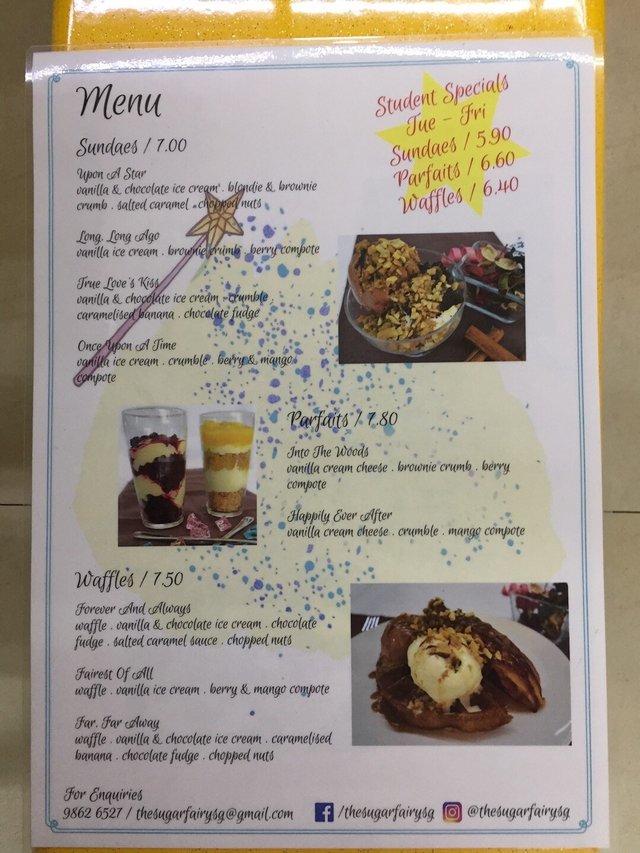 Menu
Student Specials
Tue - Fri
Sundaes / 5.90
Parfaits / 6.60
Waffles / 6.40
Sundaes / 7.00
Upon A Star
vanilla & chocolate ice cream . blondie & brownie
crumb . salted caramel . chopped nuts
Long, Long Ago
vanilla ice cream . brownie crumb . berry compote
True Love's Kiss
vanilla & chocolate ice cream . crumble .
caramelised banana . chocolate fudge
Once Upon A Time
vanilla ice cream . crumble . berry & mango
compote
Parfaits / 7.80
Into The Woods
vanilla cream cheese . brownie crumb . berry
compote
Happily Ever After
vanilla cream cheese . crumble . mango compote
Waffles / 7.50
Forever And Always
waffle . vanilla & chocolate ice cream . chocolate
fudge . salted caramel sauce . chopped nuts
Fairest Of All
waffle . vanilla ice cream . berry & mango compote
Far, Far Away
waffle . vanilla & chocolate ice cream . caramelised
banana . chocolate fudge . chopped nuts
For Enquiries
9862 6527 / thesugarfairysg@gmail.com f /thesugarfairysg @thesugarfairysg